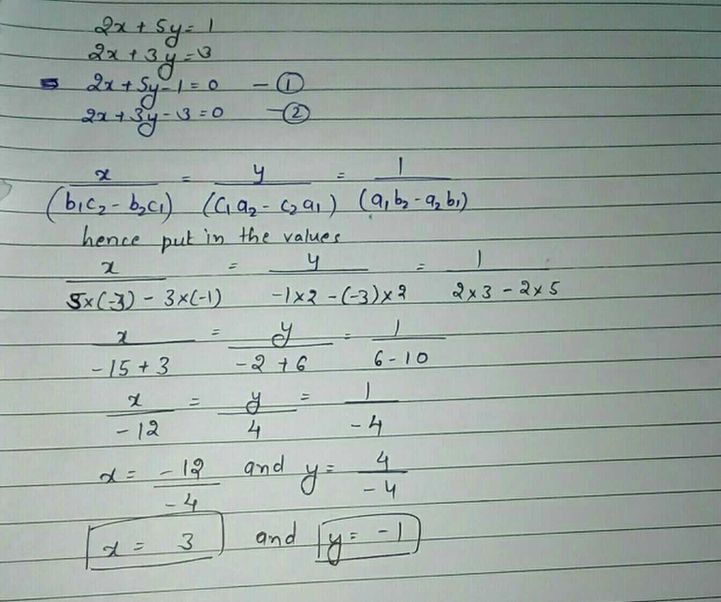 2x + 5y = 1
2x + 3y = 3
2x + 5y - 1 = 0 - ①
2x + 3y - 3 = 0 - ②
x/(b₁c₂ - b₂c₁) = y/(c₁a₂ - c₂a₁) = 1/(a₁b₂ - a₂b₁)
hence put in the values
x/(5×(-3) - 3×(-1)) = y/(-1×2 - (-3)×2) = 1/(2×3 - 2×5)
x/(-15 + 3) = y/(-2 + 6) = 1/(6 - 10)
x/(-12) = y/4 = 1/(-4)
x = -12/-4 and y = 4/-4
x = 3 and y = -1